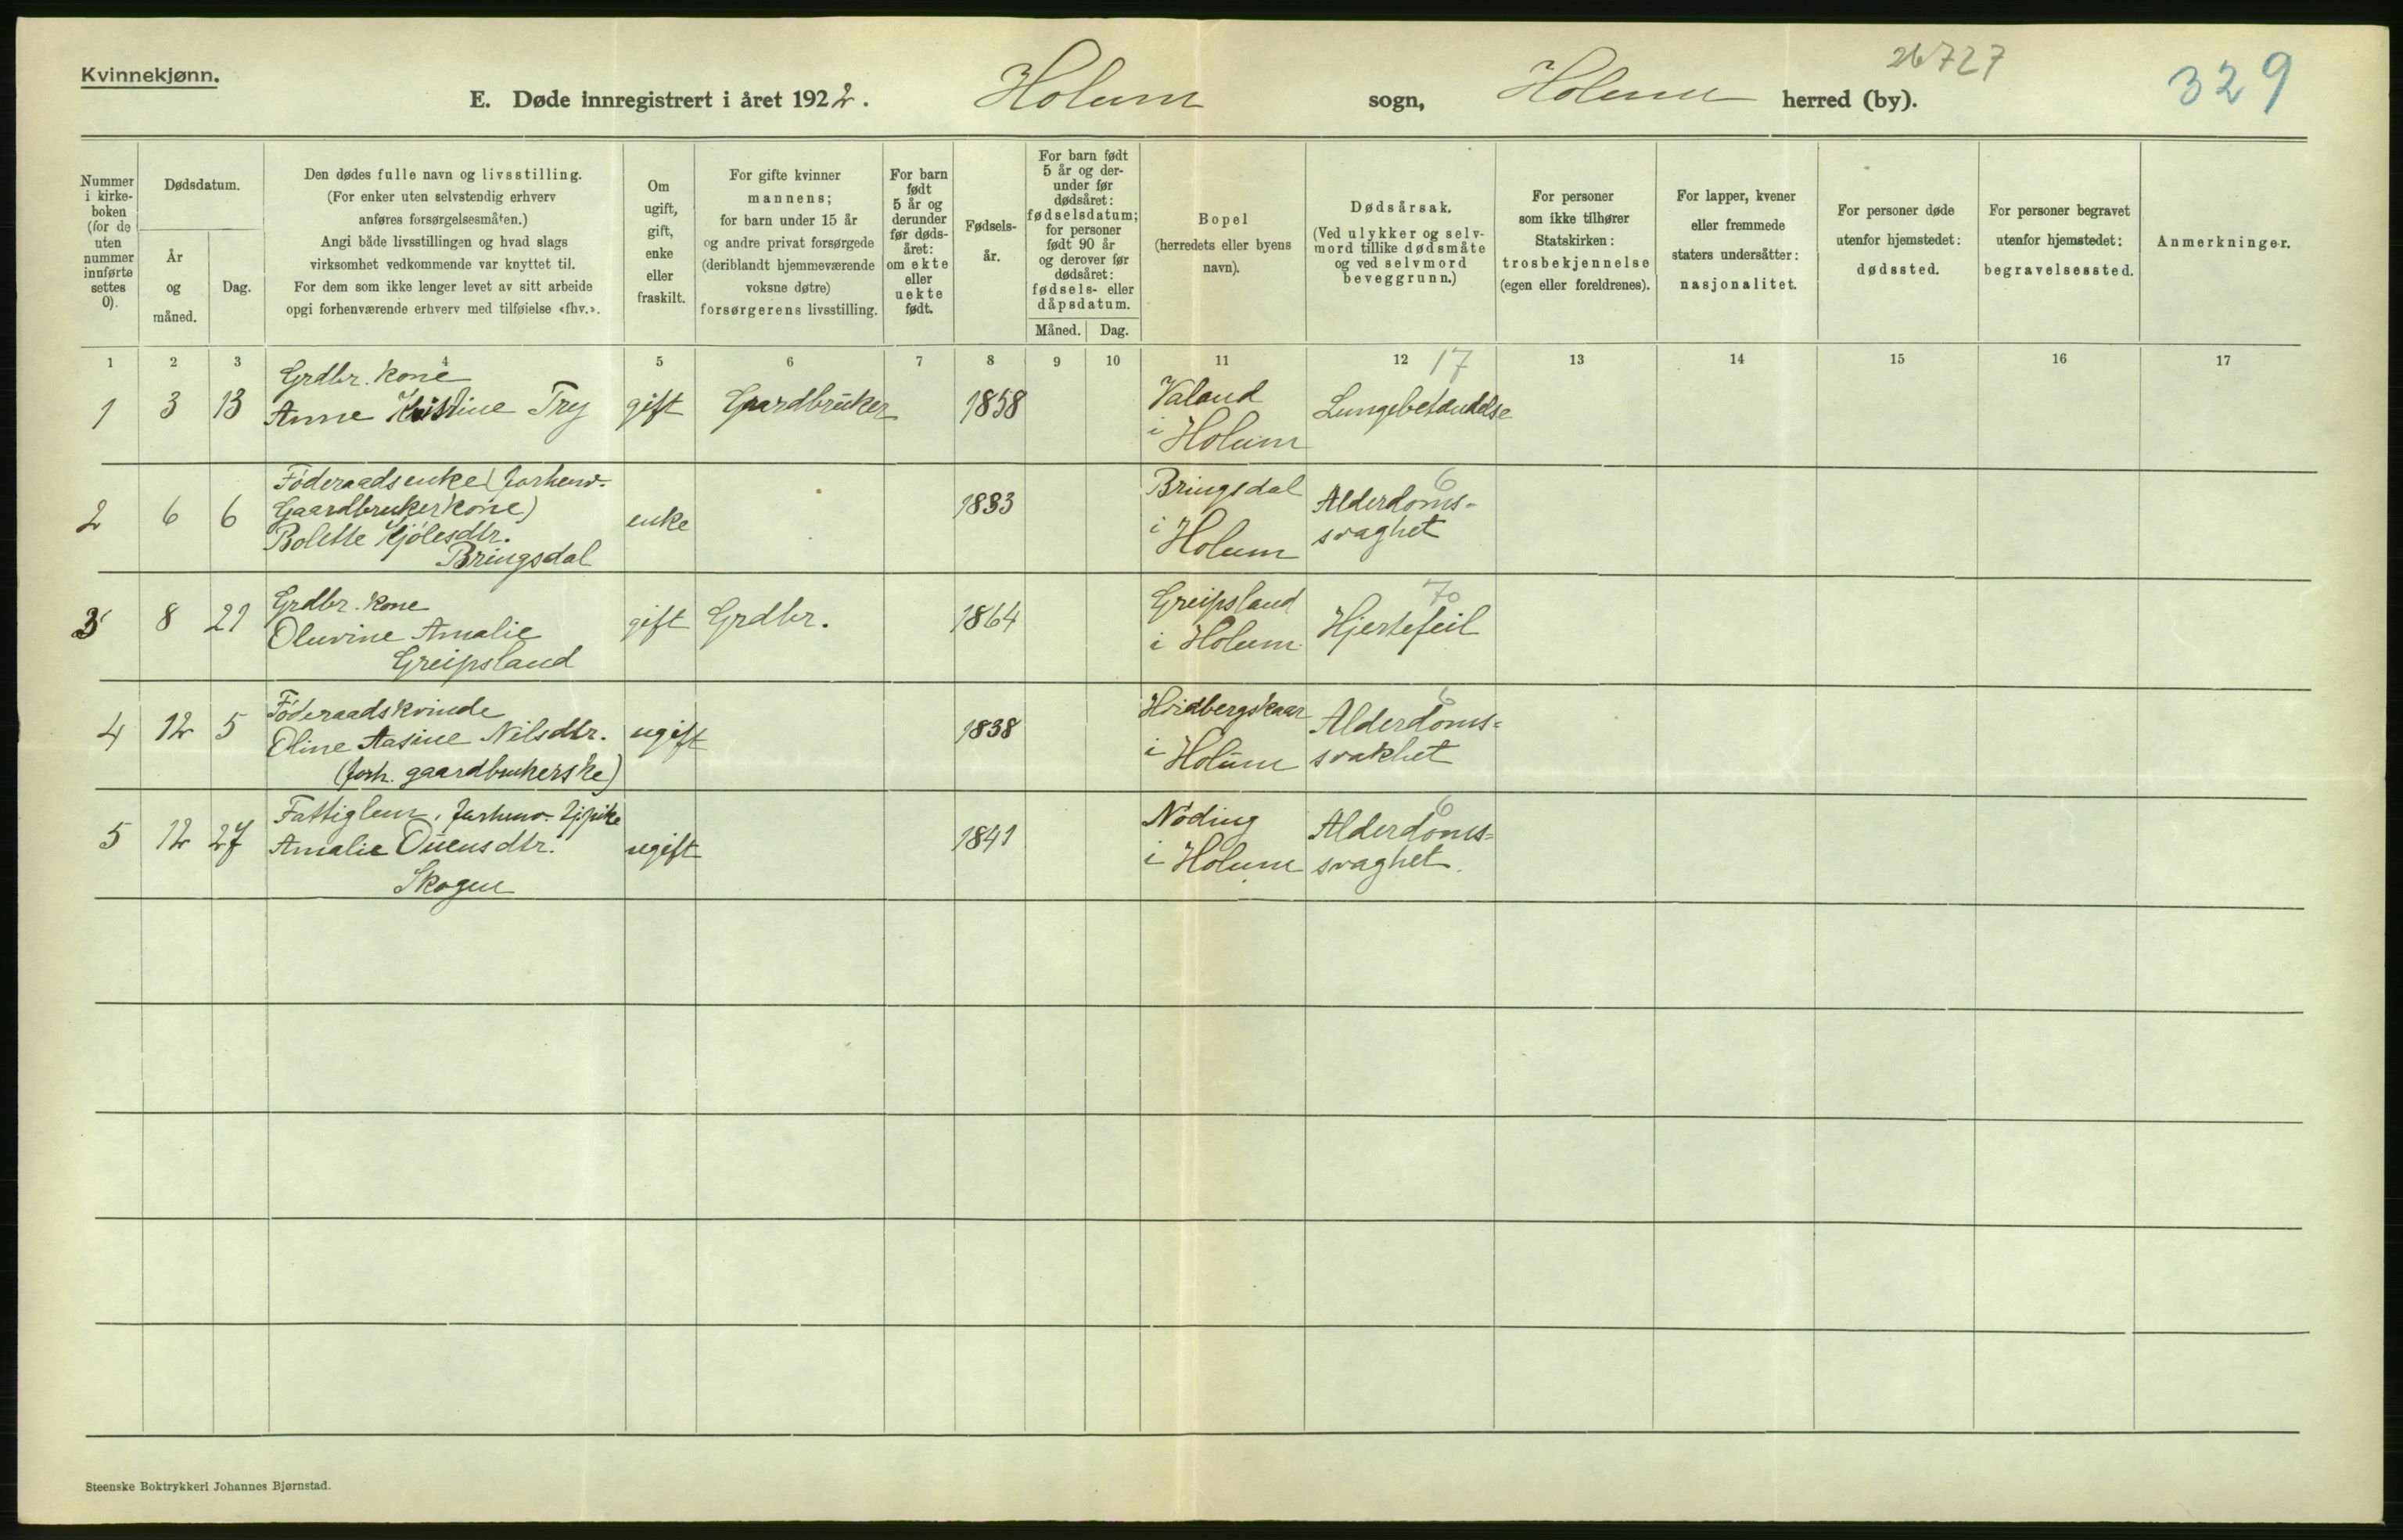 Kvinnekjønn.
E. Døde innregistrert i året 1922. Holum sogn, Holum herred (by).
26727
329
Nummer i kirkeboken (for de uten nummer innførte settes 0).
Dødsdatum.
År og måned.
Dag.
Den dødes fulle navn og livsstilling.
(For enker uten selvstendig erhverv
anføres forsørgelsesmåten.)
Angi både livsstillingen og hvad slags
virksomhet vedkommende var knyttet til.
For dem som ikke lenger levet av sitt arbeide
opgi forhenværende erhverv med tilføielse «fhv.».
Om
ugift,
gift,
enke
eller
fraskilt.
For gifte kvinner
mannens;
for barn under 15 år
og andre privat forsørgede
(deriblandt hjemmeværende
voksne døtre)
forsørgerens livsstilling.
For barn
født
5 år og
derunder
før døds-
året:
om ekte
eller
uekte
født.
Fødsels-
år.
For barn født
5 år og der-
under før
dødsåret:
fødselsdatum;
for personer
født 90 år
og derover før
dødsåret:
fødsels- eller
dåpsdatum.
Måned. Dag.
Bopel
(herredets eller byens
navn).
Dødsårsak.
(Ved ulykker og selv-
mord tillike dødsmåte
og ved selvmord
beveggrunn.)
For personer
som ikke tilhører
Statskirken:
trosbekjennelse
(egen eller foreldrenes).
For lapper, kvener
eller fremmede
staters undersåtter:
nasjonalitet.
For personer døde
utenfor hjemstedet:
dødssted.
For personer begravet
utenfor hjemstedet:
begravelsessted.
Anmerkninger.
1 2 3 4 5 6 7 8 9 10 11 12 13 14 15 16 17
17
Grdbr. kone
1 3 13 Anne Kristine Try gift Gaardbruker 1858 Valand Lungebetændelse
i Holum
Föderaadsenke (forhenv.
Gaardbrukerkone)
2 6 6 Bolette Kjölesdtr. enke 1833 Bringsdal Alderdoms-
Bringsdal i Holum svaghet
6
Grdbr. kone
3 8 21 Oluvine Amalie gift Grdbr. 1864 Greipsland Hjertefeil
Greipsland i Holum
70
Föderaadskvinde
4 12 5 Oline Aasine Nilsdtr. ugift 1838 Hvidbergskaar Alderdoms-
(forh. gaardbrukerske) i Holum svakhet
6
Fattiglem, forhenv. tjpike
5 12 27 Amalie Ouensdtr. ugift 1841 Nöding Alderdoms-
Skogen i Holum svaghet.
6
Steenske Boktrykkeri Johannes Bjørnstad.